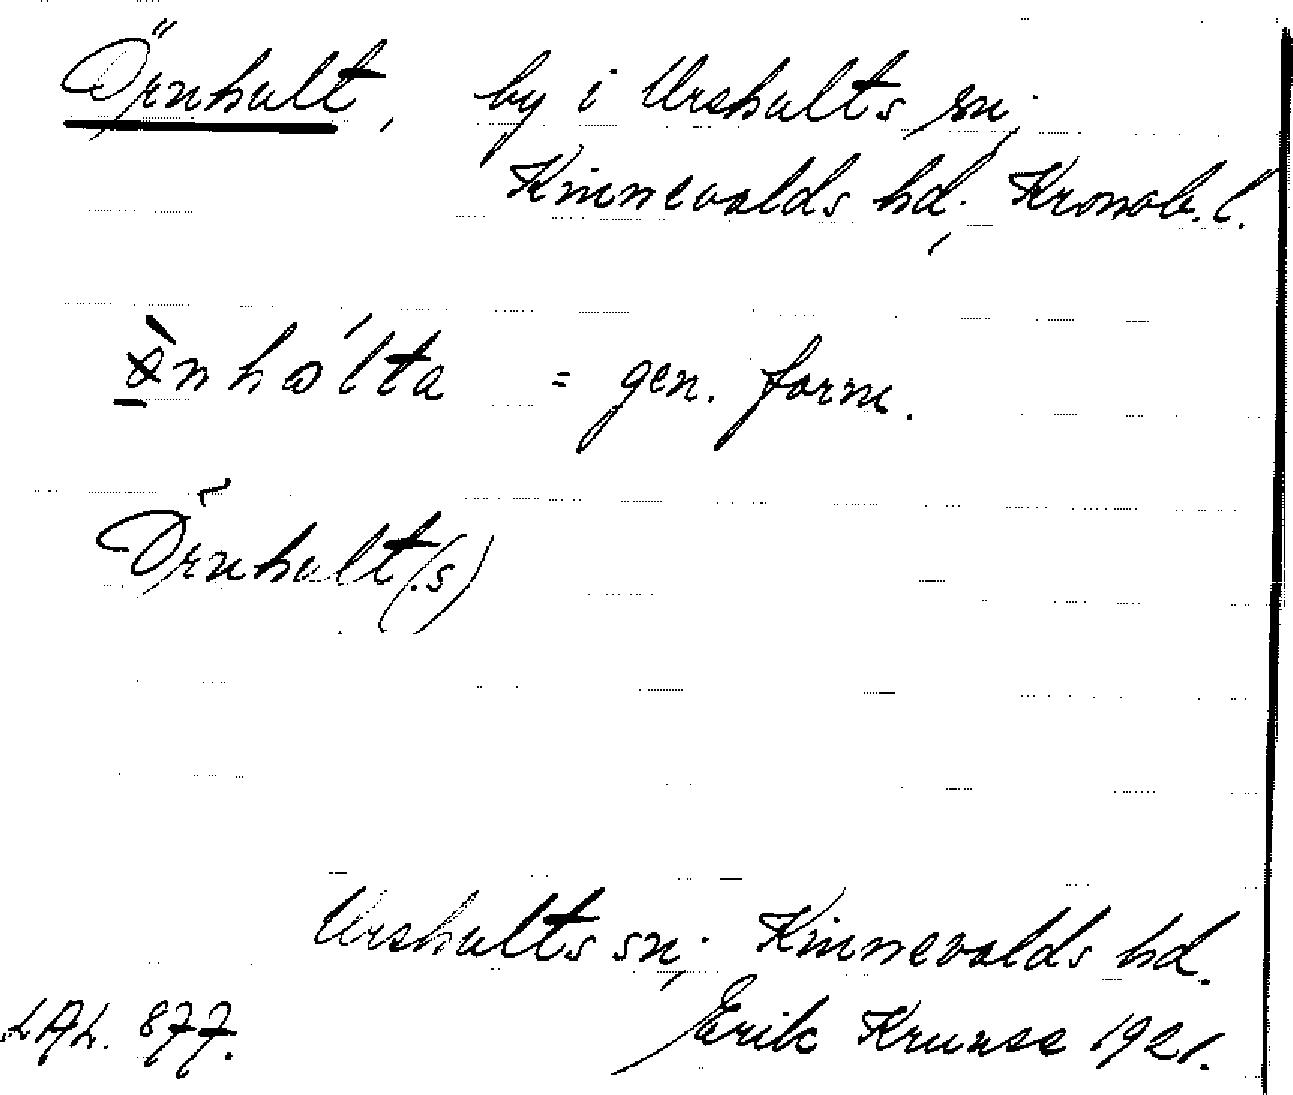 Örnhult, by i Urshults sn,
Kinnevalds hd, Kronob. l.
= gen. form.
Örnhult(s)
Urshults sn, Kinnevalds hd.
LAL. 877. Erik Krunse 1921.